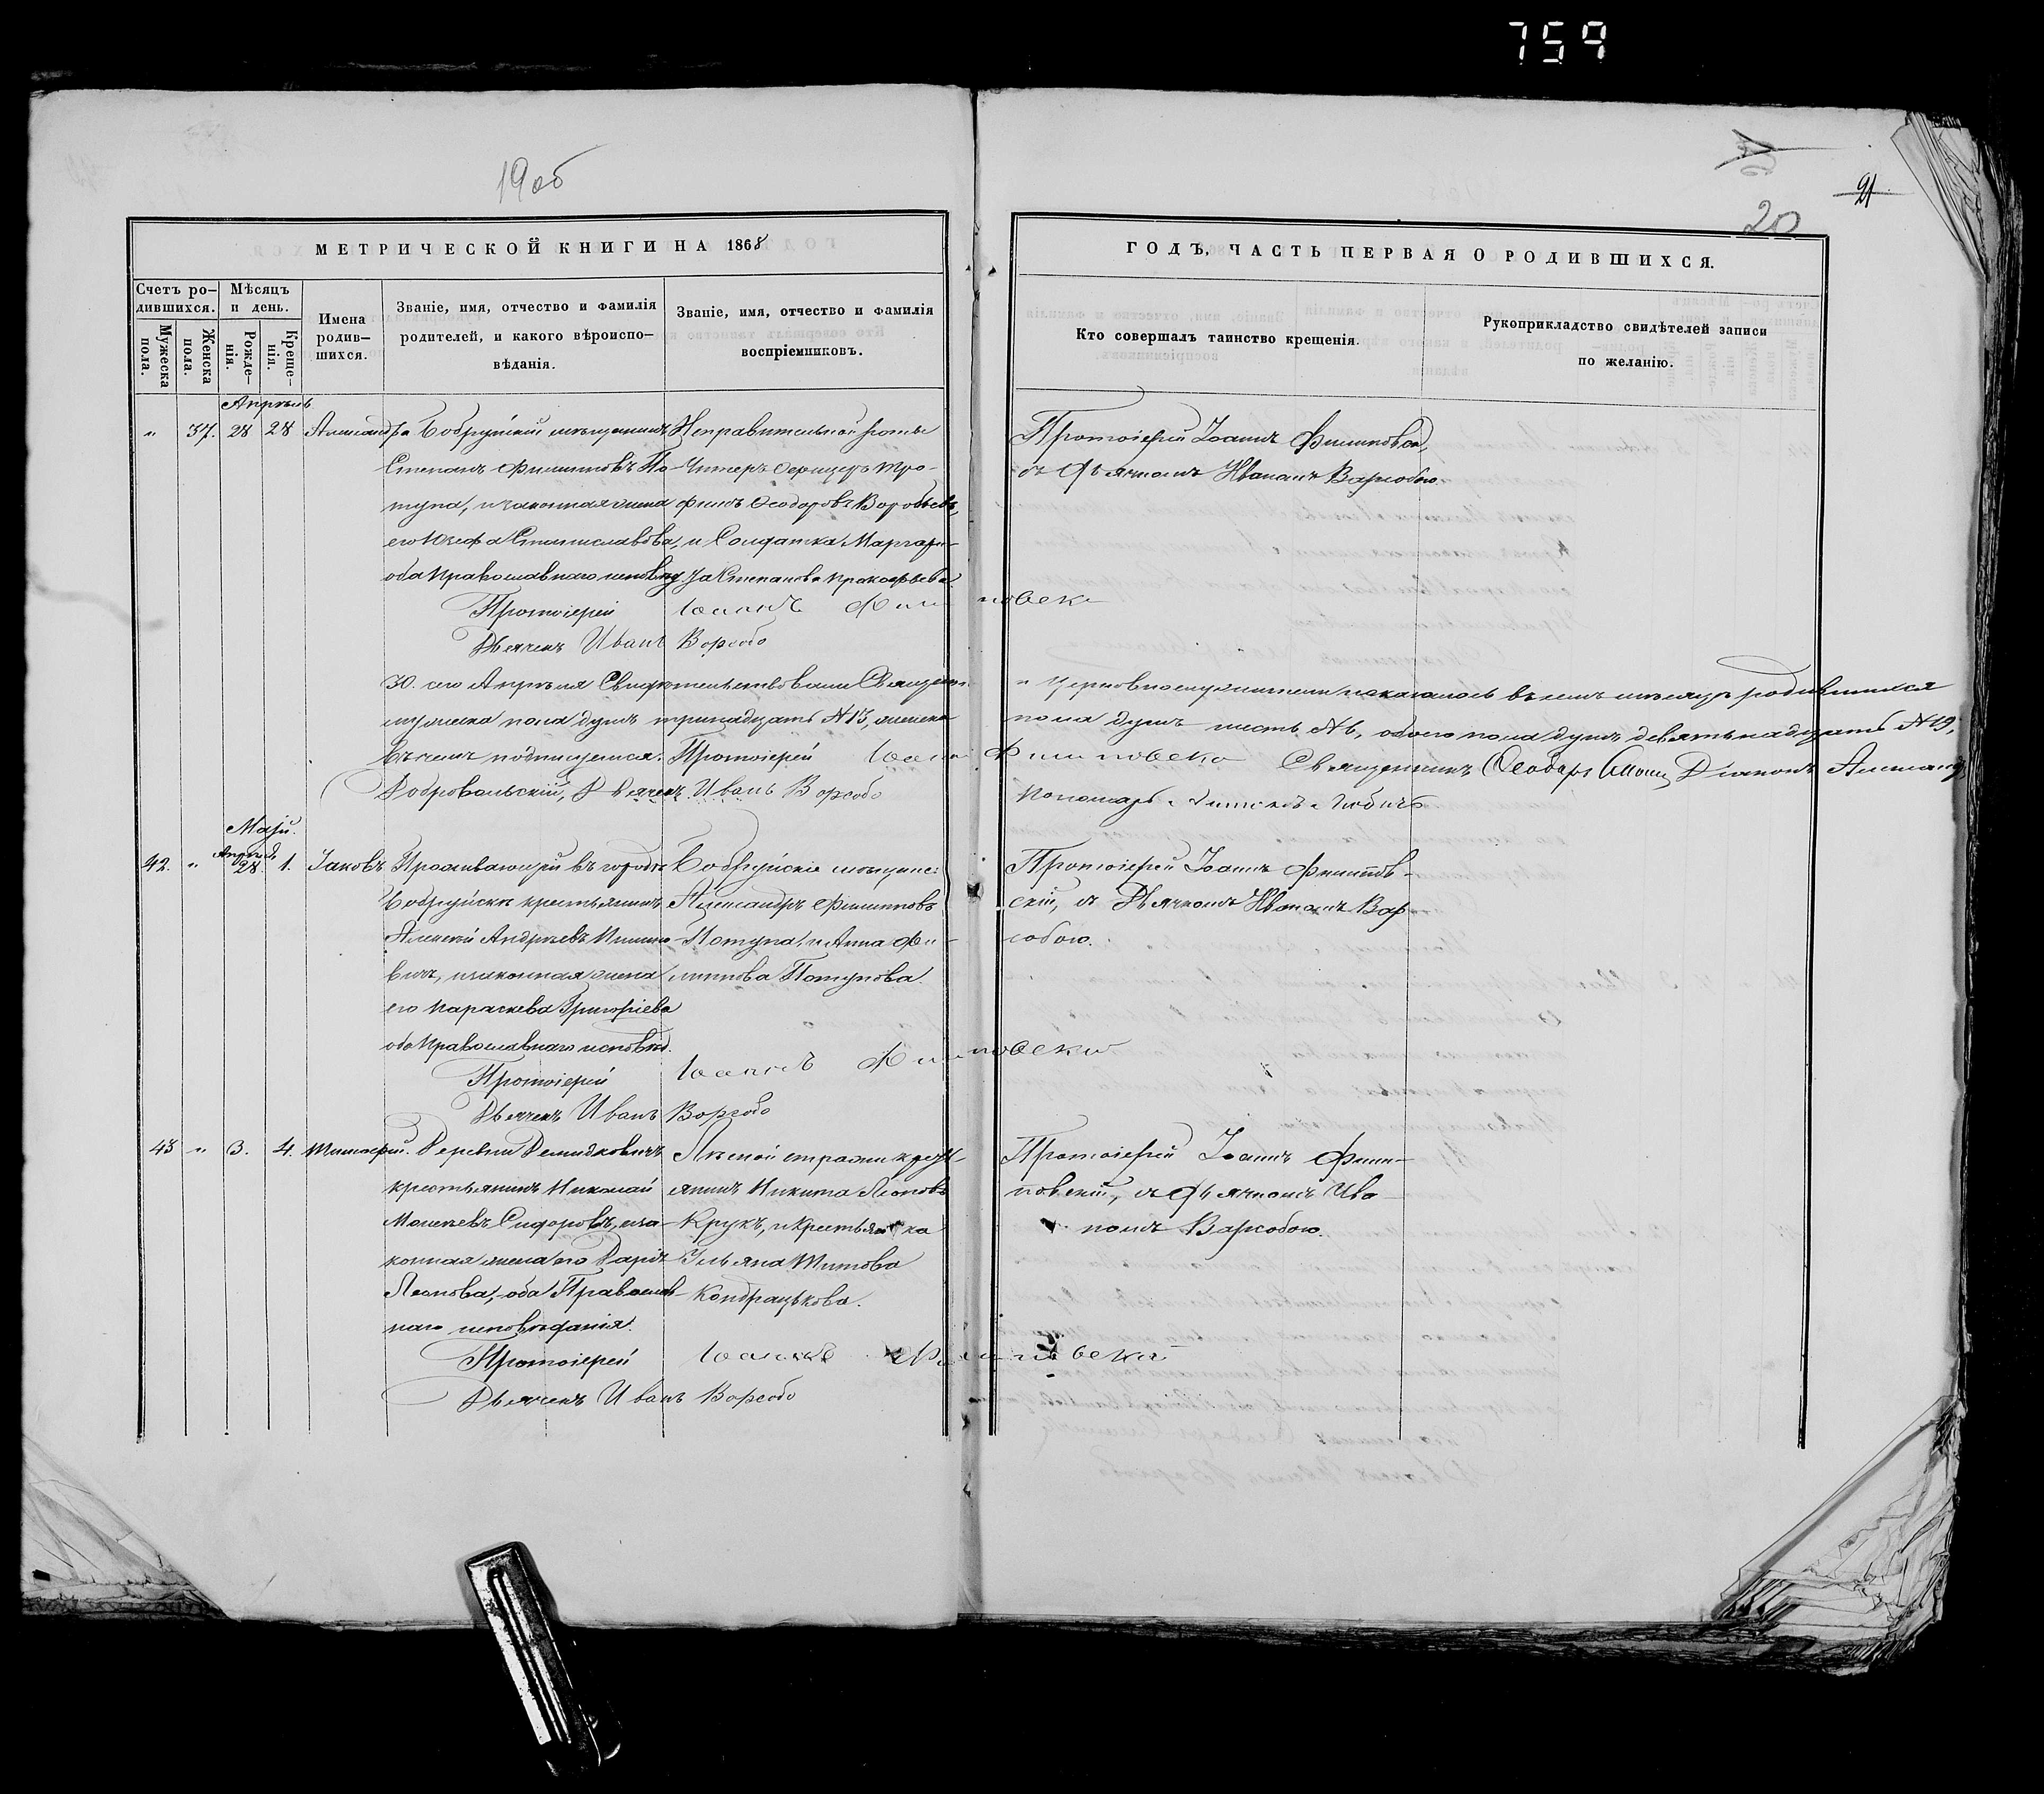 759
19 об
21
20
МЕТРИЧЕСКОЙ КНИГИ НА 1868
ГОДЪ, ЧАСТЬ ПЕРВАЯ О РОДИВШИХСЯ.
Счетъ родившихся.
Мѣсяцъ и день.
Мужеска пола.
Женска пола.
Рожденія.
Крещенія.
Имена родившихся.
Званіе, имя, отчество и фамилія родителей, и какого вѣроисповѣданія.
Званіе, имя, отчество и фамилія воспріемниковъ.
Кто совершалъ таинство крещенія.
Рукоприкладство свидѣтелей записи по желанію.
Апрѣль
" 37. 28 28 Александра
Бобруйскій мѣщанинъ
Степанъ Филиповъ По-
тупа, и законная жена
его Юзефа Станиславова,
оба Православнаго исповѣд.
Исправительной роты
Унтеръ Офицеръ Тро-
фимъ Ѳеодоровъ Воробьевъ,
и Солдатка Маргари-
та Степанова Прокофьева.
Протоіерей Іоаннъ Филиповскі
съ Дьячкомъ Иваномъ Варсобою.
Протоіерей Іоаннъ Филиповски
Дьячекъ Иванъ Ворсобо
30. сего Апрѣля Свидѣтельствовали Священно- и церковнослужители оказалось въ семъ мѣсяцѣ родившихся
мужеска пола душъ тринадцать №13, женска пола душъ шесть №6, обоего пола душъ девятьнадцать №19,
въ чемъ подписуемся. Протоіерей Іоаннъ Филиповски Священникъ Ѳеодоръ Діаконъ
Добровольскій, Дьячекъ Иванъ Ворсобо Пономарь
Маій.
42. " Апрѣль 28. 1. Іаковъ
Проживающій въ городѣ
Бобруйскѣ крестьянинъ
Алексѣй Андреевъ
вичъ, и законная жена
его Параскева Григоріева
оба Православнаго исповѣд.
Бобруйскіе мѣщане:
Александръ Филиповъ
Потупа, и Анна Фи-
липова Потупова.
Протоіерей Іоаннъ Филипов-
скій, съ Дьячкомъ Иваномъ Вар-
собою.
Протоіерей Іоаннъ Филиповски
Дьячекъ Иванъ Ворсобо
43 " 3. 4. Тимоѳей.
Деревни
крестьянинъ Николай
Моисеевъ Сидоровъ, и за-
конная жена его Дарія
Леонова, оба Православ-
наго исповѣданія.
Лѣсной стражи крестъ-
янинъ Никита Леоновъ
Крукъ, и крестьянка
Ульяна Титова
Кондрацькова.
Протоіерей Іоаннъ Фили-
повскій, съ Дьячкомъ Ива-
номъ Варсобою.
Протоіерей Іоаннъ Филиповски
Дьячекъ Иванъ Ворсобо